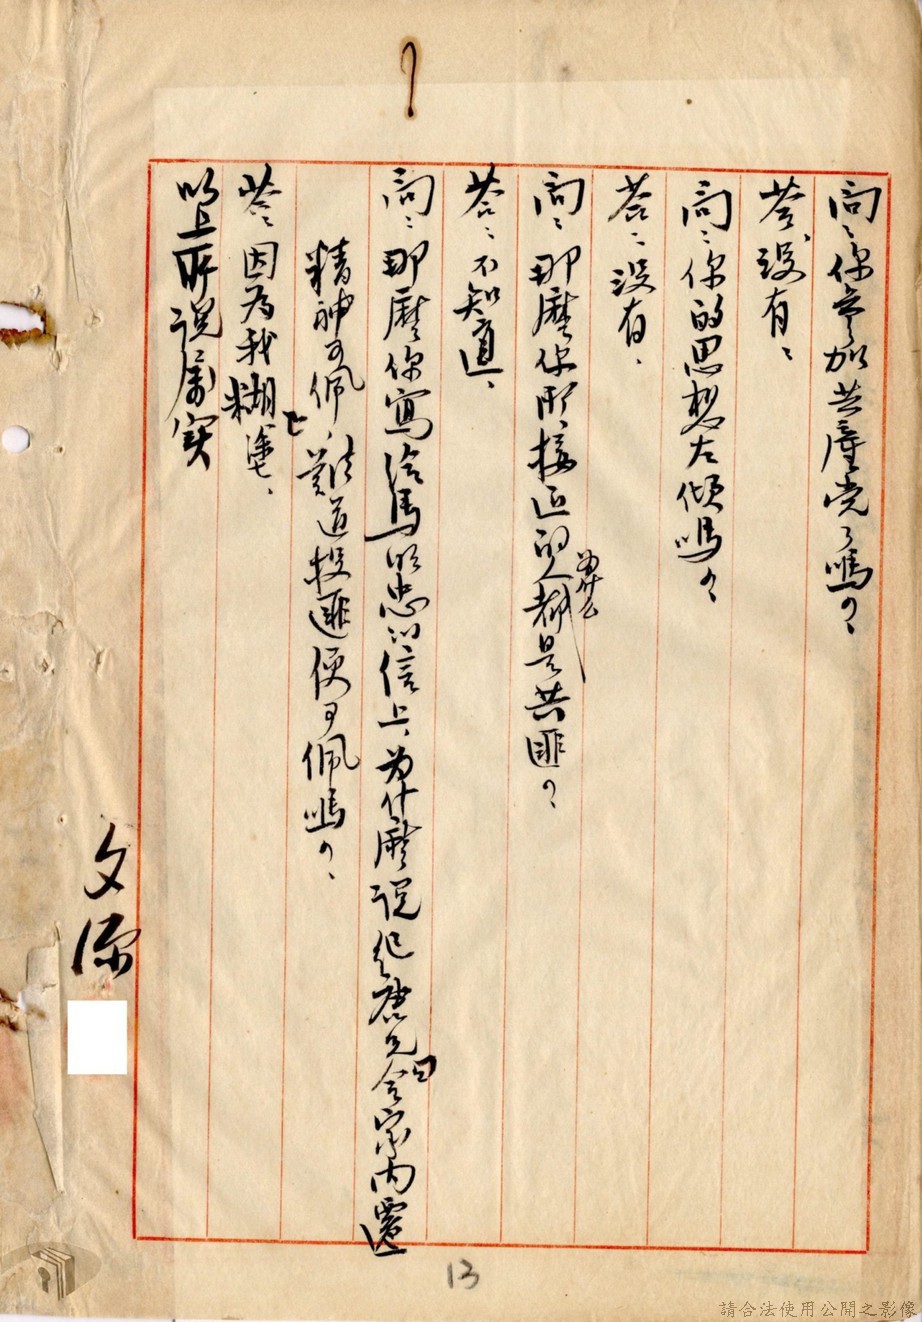 問：你參加共產党了嗎？
答：没有。
問：你的思想左傾嗎？
答：没有．
問：那麼你所接近的人為什么都是共匪？
答：不知道．
問：那麼你寫給馬明忠的信上，為什麼說 兄全家内遷
精神可佩，難道投匪便可佩嗎？
答：因為我糊塗．
以上所說屬实
文源
13
請合法使用公開之影像